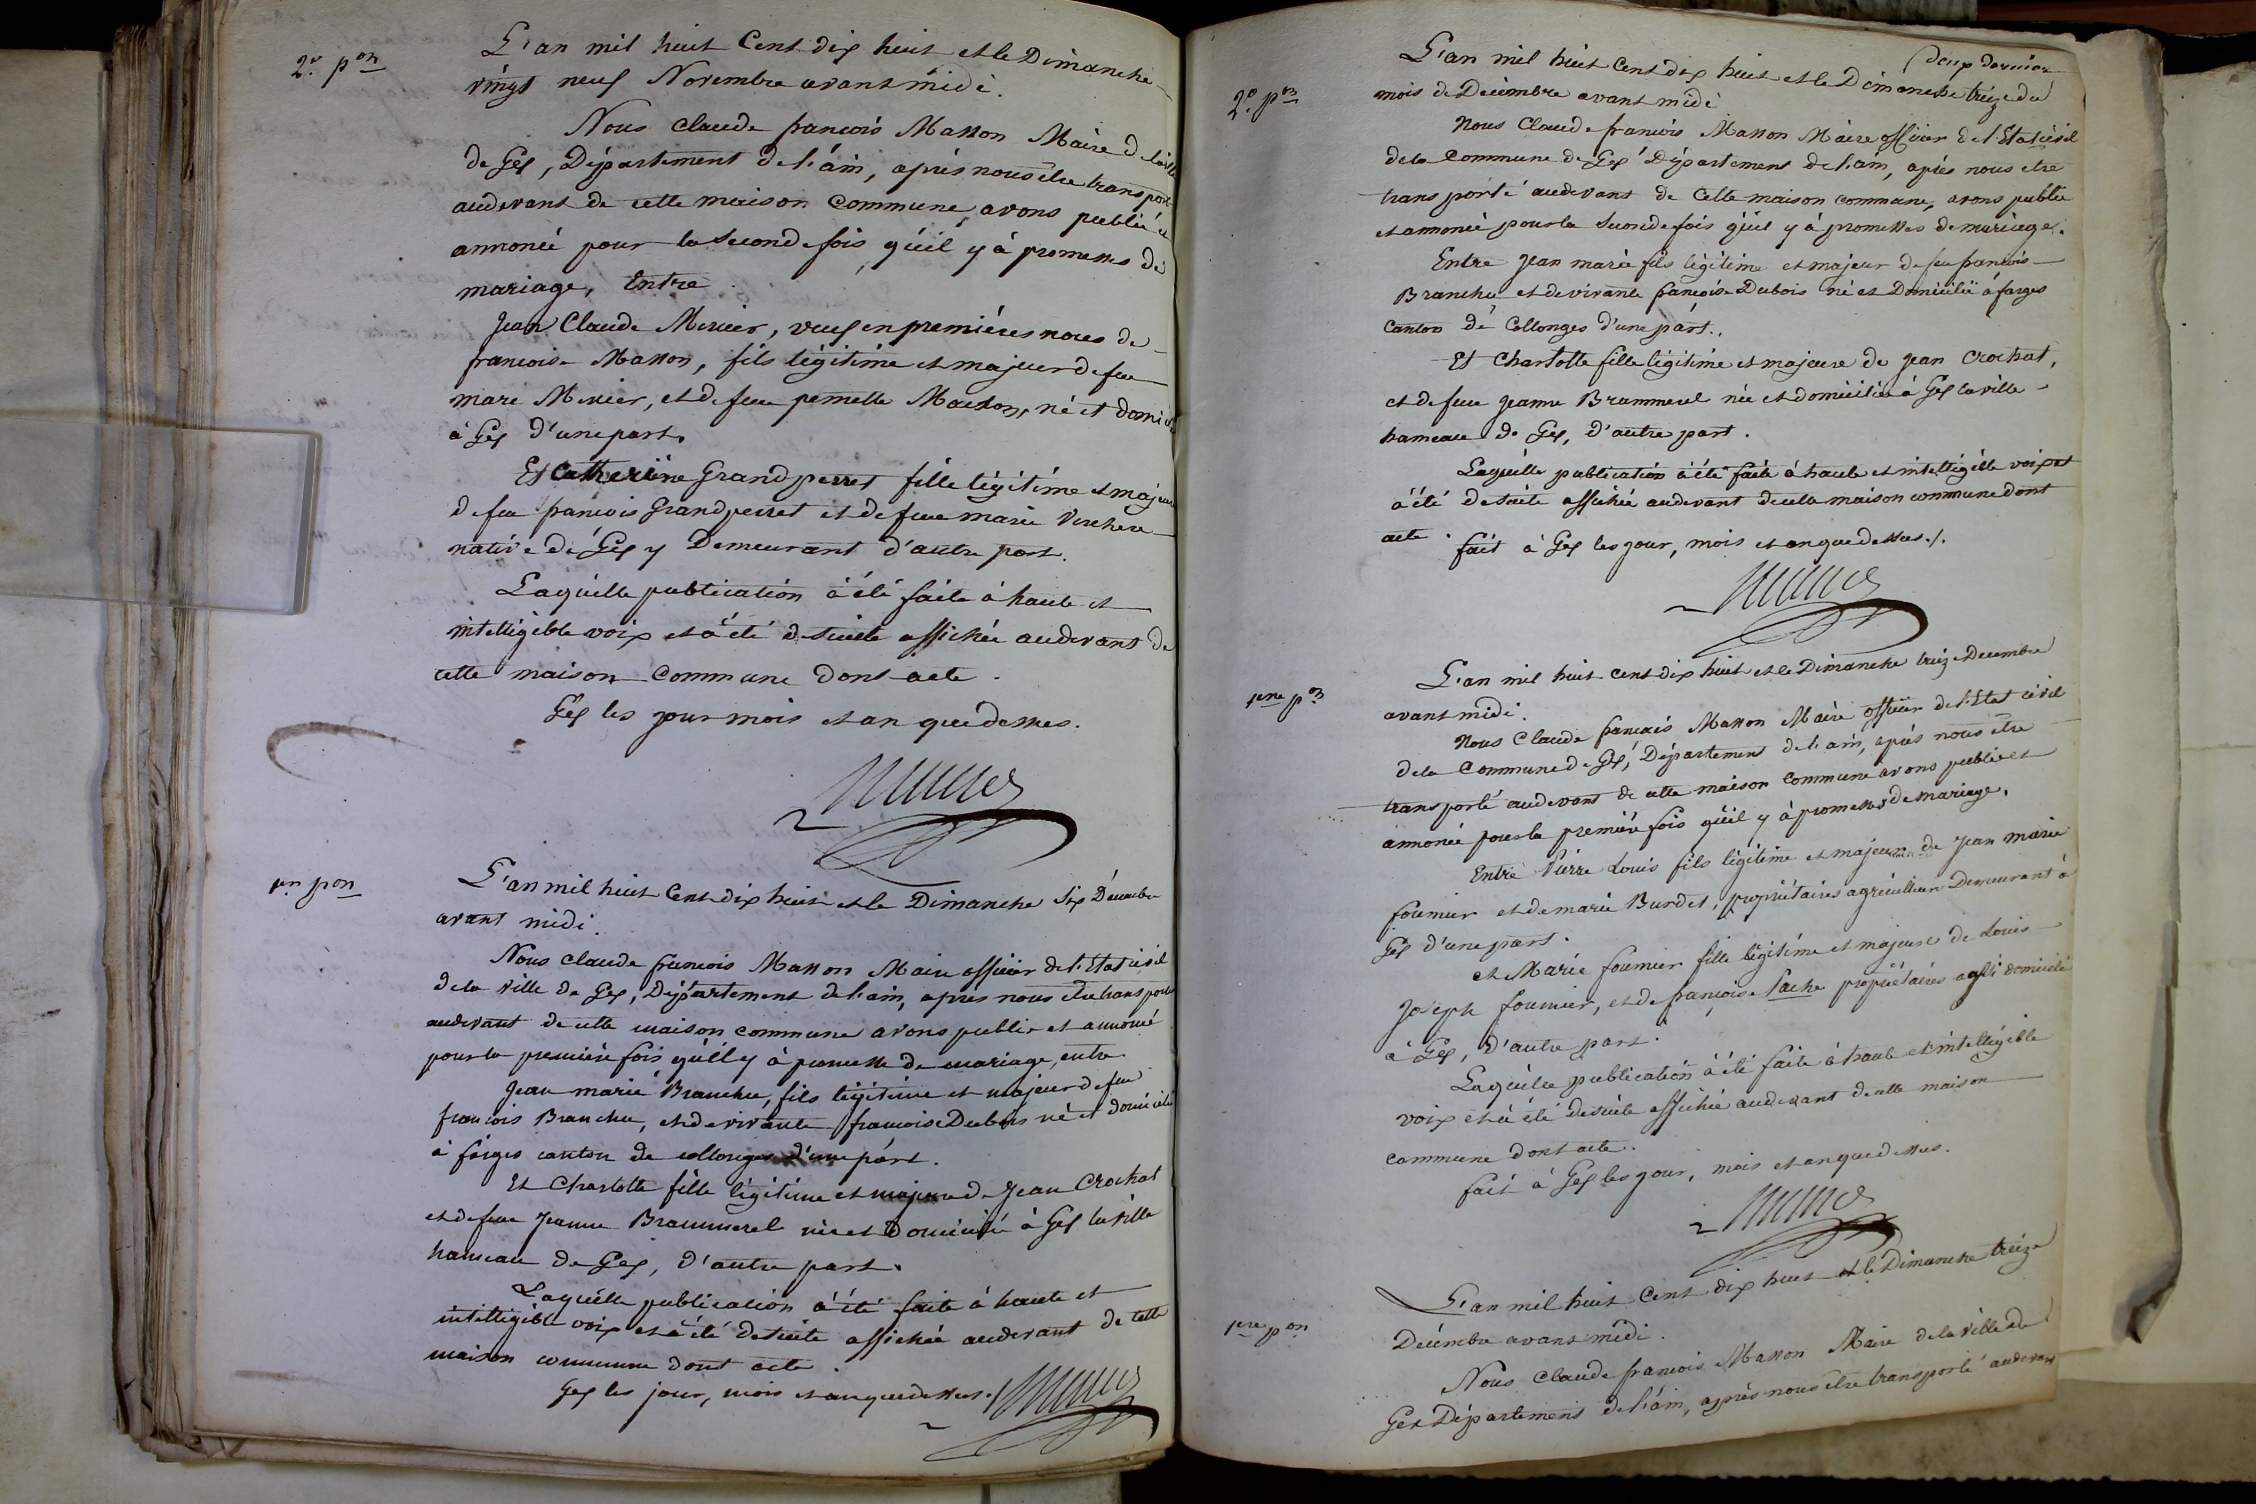 2.e p.on
L'an mil huit Cent dix huit et le Dimanche
vingt neuf Novembre avant midi.
Nous Claude françois Masson Maire de la ville
de Gex, Département de l'ain, après nous être transporté
audevant de cette maison Commune, avons publié et
annoncé pour la seconde fois qu'il y à promesses de
mariage, Entre
Jean Claude Mercier, veuf en premières noces de
françoise Masson, fils légitime et majeur de feu
marc Mercier, et de feue pernette Masson, né et domicilié
à Gex d'une part.
Et Catherine Grandperret fille légitime et majeure
de feu françois Grandperret et de feue marie Verchere
native de Gex y Demeurant d'autre part.
Laquelle publication à été faite à haute et
intelligible voix et à été de suite affichée audevant de
cette maison Commune Dont acte.
Gex les jour mois et an que dessus.
1.re p.on
L'an mil huit Cent dix huit et le Dimanche Six Décembre
avant midi.
Nous claude françois Masson Maire officier de l'Etat civil
de la ville de Gex, Département de l'ain, apres nous être transporté
audevant de cette maison commune avons publié et annoncé
pour la première fois qu'il y à promesse de mariage, entre
Jean marie Branchu, fils légitime et majeur de feu
françois Branchu, et de vivante françoise Dubois né et domicilié
à farges canton de collonges d'une part.
Et Charlotte fille légitime et majeure de Jean Crochat
et de feue Jeanne Brammerel née et Domicilié à Gex la ville
hameau de Gex, d'autre part.
Laquelle publication à été faite à haute et
intelligible voix et à été de suite affichée audevant de cette
maison commune dont acte.
Gex les jour, mois et an que dessus./.
2.e p.on
deux dernier
L'an mil huit Cent dix huit et le Dimanche treize du
mois de Décembre avant midi
Nous Claude françois Masson Maire officier de l'Etat civil
de la Commune de Gex Département de l'ain, après nous etre
transporté audevant de Cette maison commune, avons publié
et annoncé pour la Seconde fois qu'il y à promesses de mariage.
Entre Jean marie fils légitime et majeur de feu françois
Branchu et de vivante françoise Dubois né et Domicilié à farges
canton de Collonges d'une part.
Et Charlotte fille légitime et majeure de Jean Crochat,
et de feue Jeanne Brammerel née et domiciliée à Gex la ville
hameau de Gex, d'autre part.
Laquelle publication à été faite à haute et intelligible voix et
à été de suite affichée audevant de cette maison commune dont
acte.
fait à Gex les jour, mois et an que dessus./.
1.ere p.on
L'an mil huit Cent dix huit et le Dimanche treize Decembre
avant midi.
Nous Claude françois Masson Maire officier de l'Etat civil
de la Commune de Gex, Département de l'ain, après nous être
transporté audevant de cette maison Commune avons publié et
annoncé pour la première fois qu'il y à promesses de mariage.
Entre Pierre Louis fils légitime et majeur de Jean marie
fournier et de marie Burdet, propriétaires agriculteurs Demeurant à
Gex d'une part.
et Marie fournier fille légitime et majeure de Louis
Joseph fournier, et de françoise Pache propriétaires domiciliés
à Gex, d'autre part.
Laquelle publication à été faite à haute et intelligible
voix et à été de suite affichée audevant de cette maison
commune dont acte.
fait à Gex les jour, mois et an que dessus.
1.ere p.on
L'an mil huit Cent dix huit et le Dimanche treize
Décembre avant midi.
Nous Claude françois Masson Maire de la ville de
Gex Département de l'ain, après nous être transporté audevant